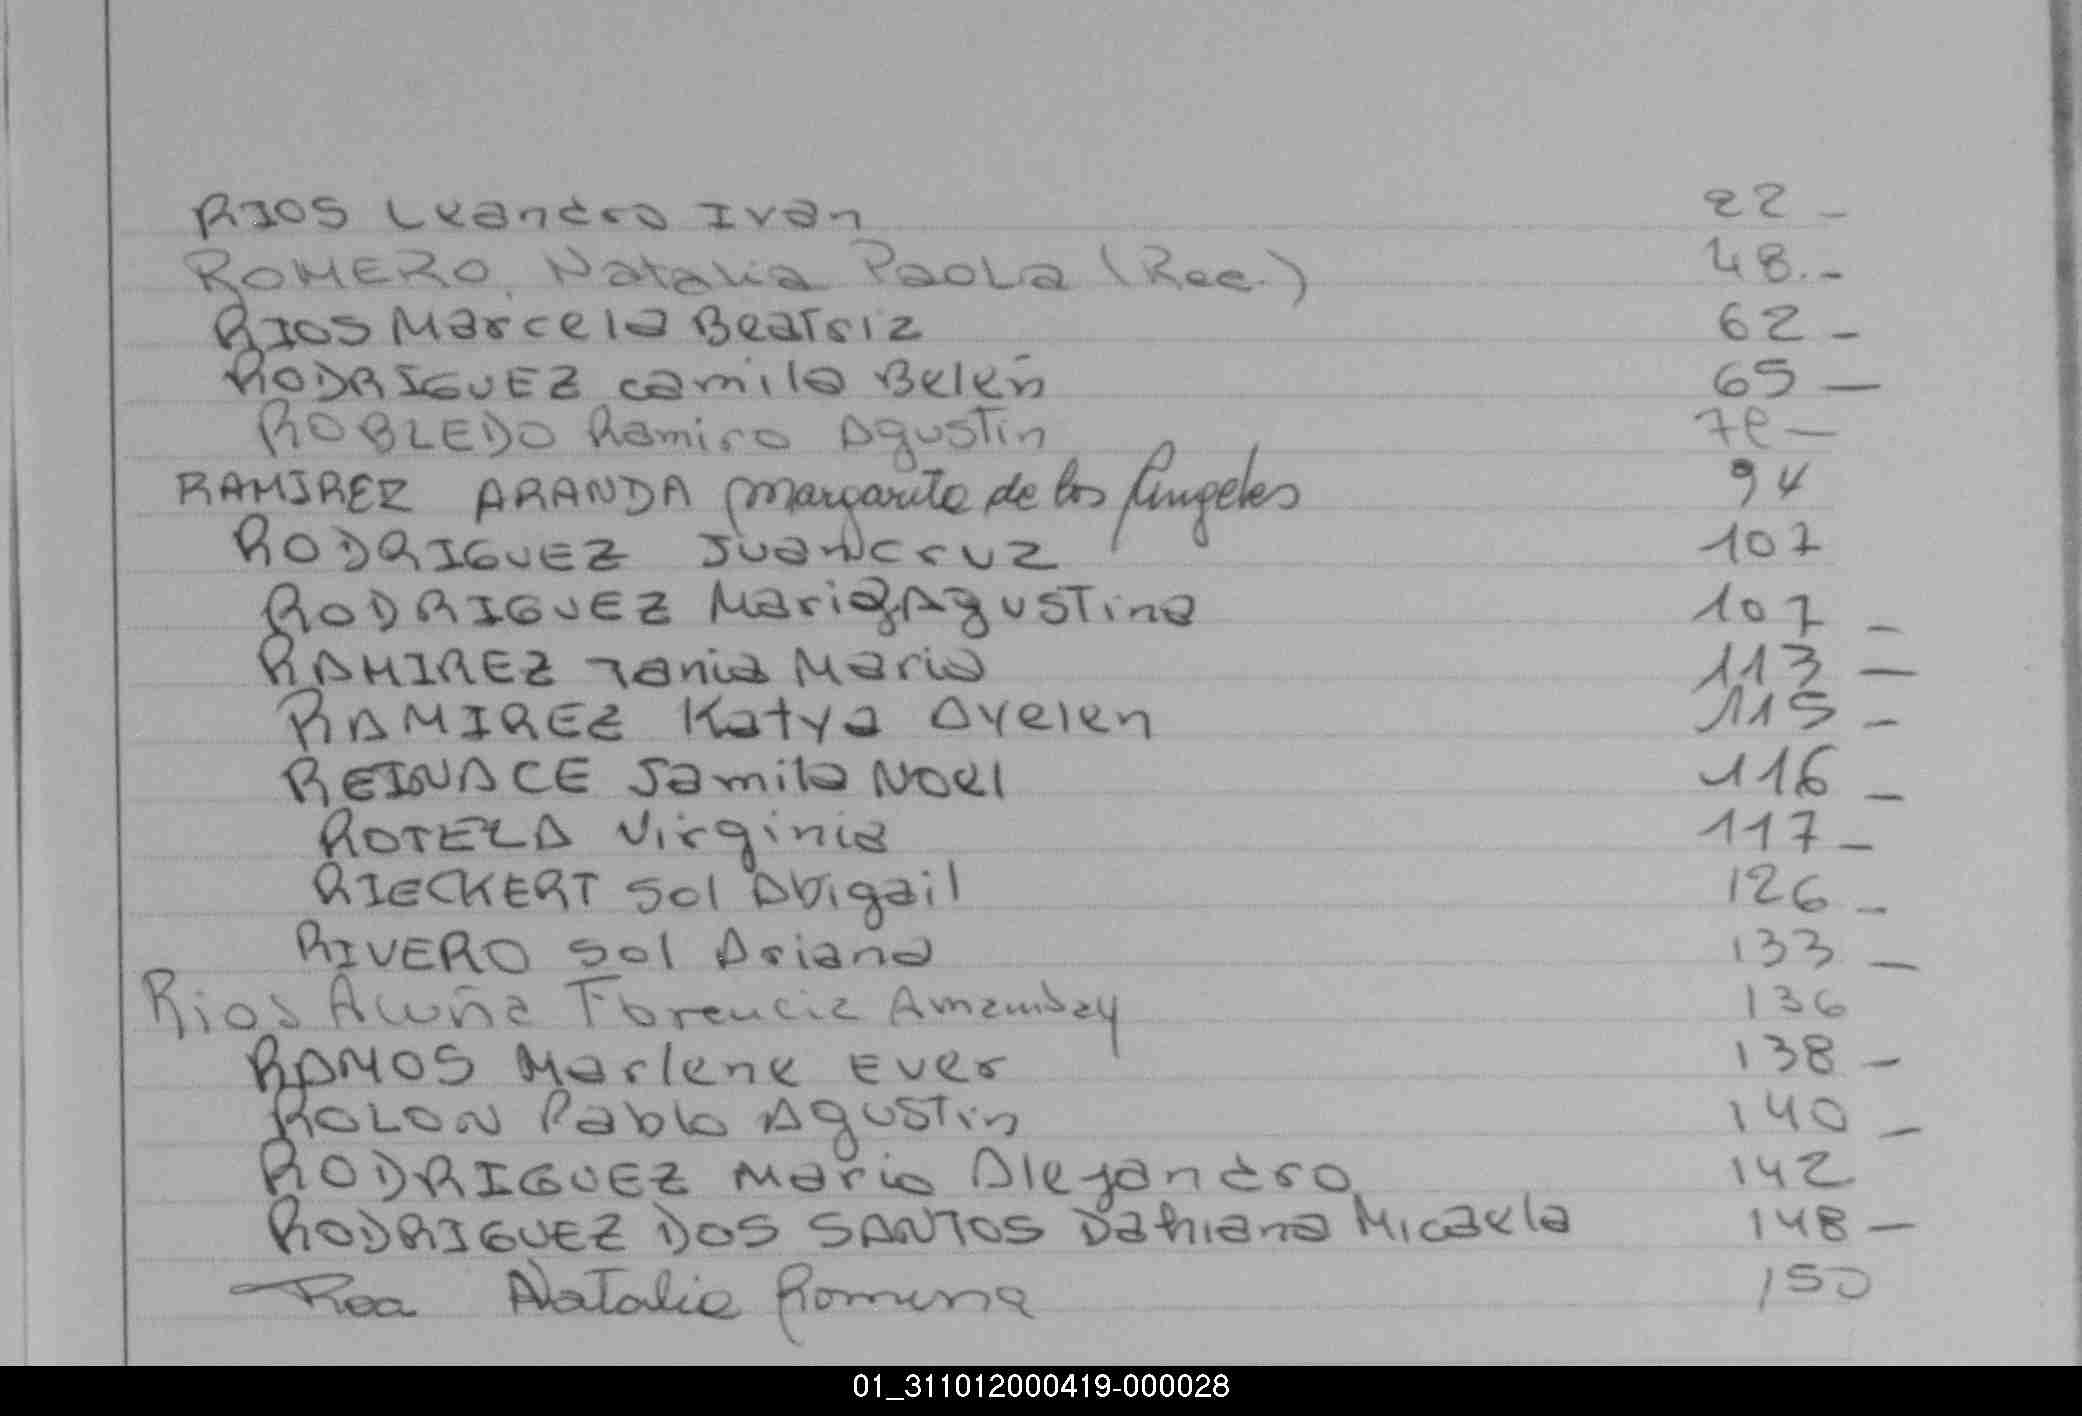 RIOS Leandro Ivan 22 -
ROMERO, Natalia Paola (Rec.) 48.-
RIOS Marcela Beatriz 62 -
RODRIGUEZ Camila Belén 65 -
ROBLEDO Ramiro Agustin -
RAMIREZ ARANDA Margarita de los Angeles 94
RODRIGUEZ Juan Cruz 107
RODRIGUEZ Maria Agustina 107 -
RAMIREZ Tania Maria 113 -
RAMIREZ Katya Ayelen 115 -
REINACE Jamila Noel 116 -
ROTELA Virginia 117 -
RIECKERT Sol Abigail 126 -
RIVERO Sol Ariana 133 -
Rios Acuña Florencia Amambay 136
RAMOS Marlene Ever 138 -
ROLON Pablo Agustin 140 -
RODRIGUEZ Mario Alejandro 142
RODRIGUEZ DOS SANTOS Dahiana Micaela 148 -
Roa Natalia Romina 150
01_311012000419-000028